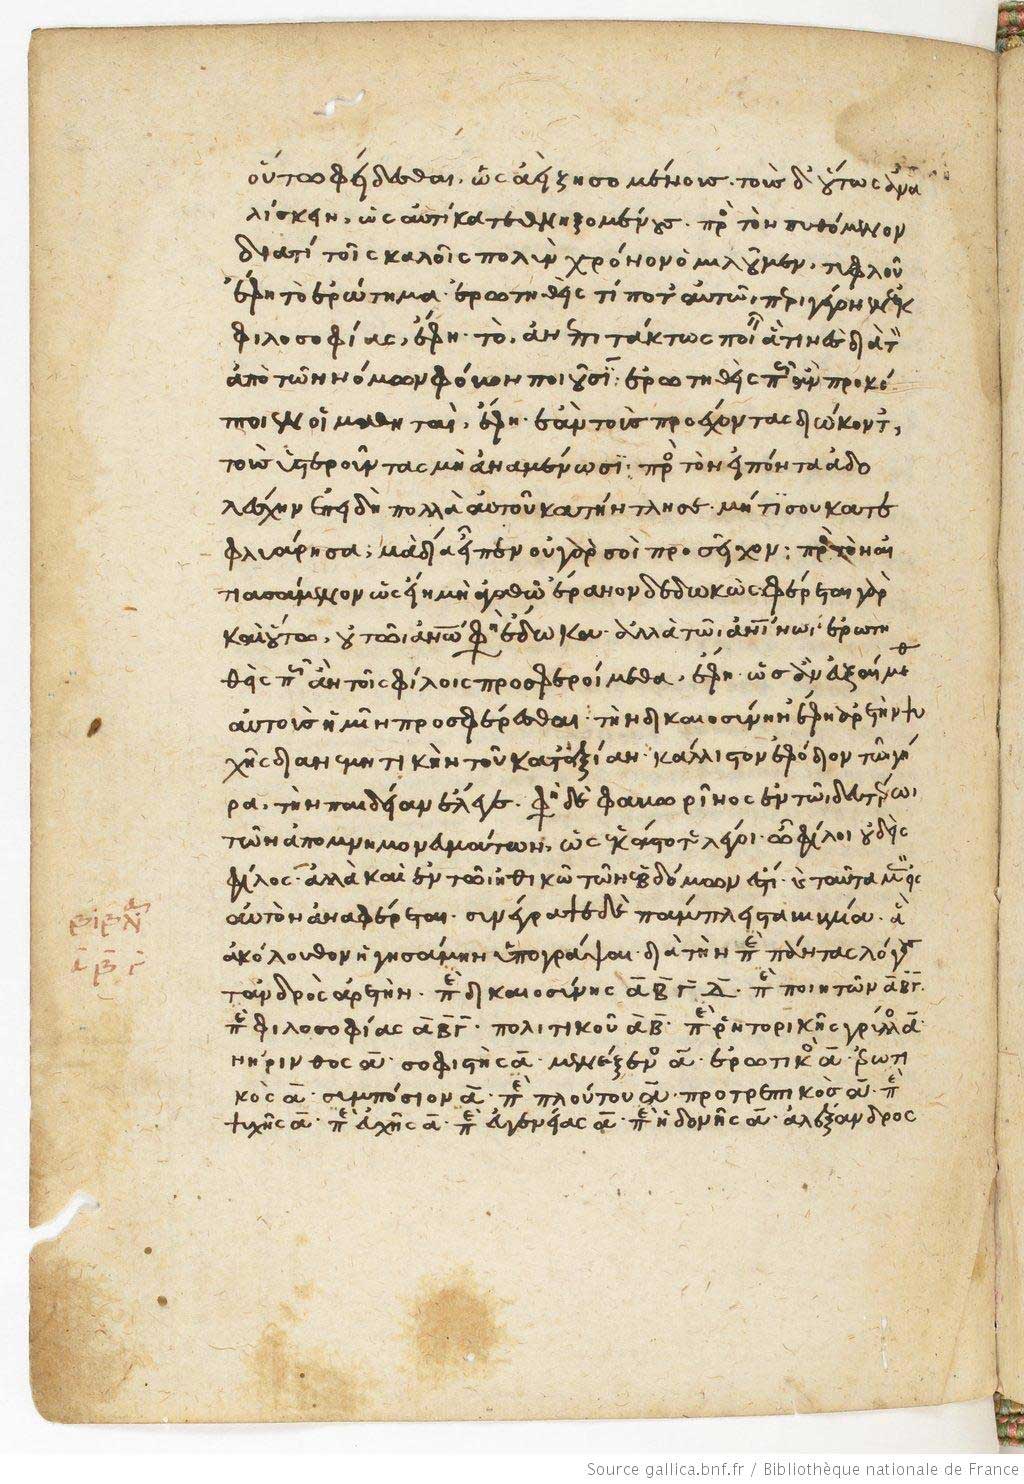 οὕτω φείδεσθαι, ὡς ἀεὶ ζησομένους. τοὺς δ' οὕτως ἀνα
λίσκειν, ὡς αὐτίκα τεθνηξομένους. πρὸς τὸν πυθόμενον
διατί τοῖς καλοῖς πολὺν χρόνον ὁμιλοῦμεν, τυφλοῦ
ἔφη τὸ ἐρώτημα. ἐρωτηθεὶς τί ποτ' αὐτῶ περιγέγονεν ἐκ
φιλοσοφίας, ἔφη. τὸ, ἀνεπιτάκτως ποιεῖν ἅ τινες διὰ τὸν
ἀπὸ τῶν νόμων φόβον ποιοῦσιν. ἐρωτηθεὶς πῶς ἂν προκό
πτοιεν οἱ μαθηταὶ, ἔφη. ἐὰν τοὺς προέχοντας διώκοντες,
τοὺς ὑστεροῦντας μὴ ἀναμένωσι. πρὸς τὸν εἰπόντα ἀδο
λέσχην ἐπειδὴ πολλὰ αὐτοῦ κατήντλησε. μήτι σου κατε
φλυάρησα; μὰ δία εἶπεν οὐ γάρ σοι προσεῖχον; πρὸς τὸν αἰ
τιασάμενον ὡς εἴη μὴ ἀγαθῶ ἔρανον δεδωκώς. φέρεται γὰρ
καὶ οὕτω, οὐ τῶ ἀνθρώπω φησὶν ἔδωκα. ἀλλὰ τῶ ἀνθρωπίνω. ἐρωτη
θεὶς πῶς ἂν τοῖς φίλοις προσφεροίμεθα, ἔφη. ὡς ἂν εὐξαίμεθα
αὐτοὺς ἡμῖν προσφέρεσθαι. τὴν δικαιοσύνην ἔφη ἀρετὴν ψυ
χῆς διανεμητικὴν τοῦ κατ' ἀξίαν. κάλλιστον ἐφόδιον τῶ γή
ρα, τὴν παιδείαν ἔλεγε. φησὶ δὲ φαβωρῖνος ἐν τῶ δευτέρωι
τῶν ἀπομνημονευμάτων, ὡς ἑκάστοτε λέγοι. ὦ φίλοι οὐδεὶς
φίλος. ἀλλὰ καὶ ἐν τῶ ἠθικῶ τῶν ἑβδόμων ἐστί. καὶ ταῦτα μὲν εἰς
αὐτὸν ἀναφέρεται. συνέγραψε δὲ πάμπλειστα βιβλία. ἃ
ἀκόλουθον ἡγησάμην ὑπογράψαι. διὰ τὴν περὶ πάντας λόγους
τἀνδρὸς ἀρετήν. περὶ δικαιοσύνης α β γ δ. περὶ ποιητῶν α β γ.
περὶ φιλοσοφίας α β γ. πολιτικοῦ α β. περὶ ῥητορικῆς γρύλλος α.
νήρινθος α. σοφιστὴς α. μενέξενος α. ἐρωτικὸς α. ἐρωτι
κὸς α. συμπόσιον α. περὶ πλούτου α. προτρεπτικὸς α. περὶ
ψυχῆς α. περὶ εὐχῆς α. περὶ εὐγενείας α. περὶ ἡδονῆς α. ἀλέξανδρος